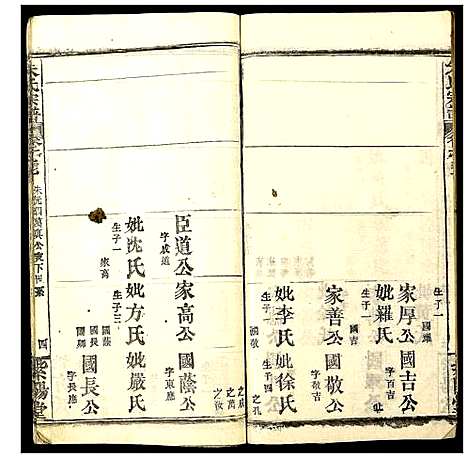 生子一
國輝
家厚公
國吉公
字百吉
妣羅氏
生子一
國吉
家善公
國敬公
字敬吉
妣李氏
妣徐氏
生子一
國敬
之孔
臣道公
字成道
家高公
國蔭公
字東應
妣沈氏
生子一
家高
妣方氏
生子三
國蔭
國長
國卿
妣嚴氏
之成
之萬
之汝
國長公
字長應
朱氏宗譜
四
紫陽堂